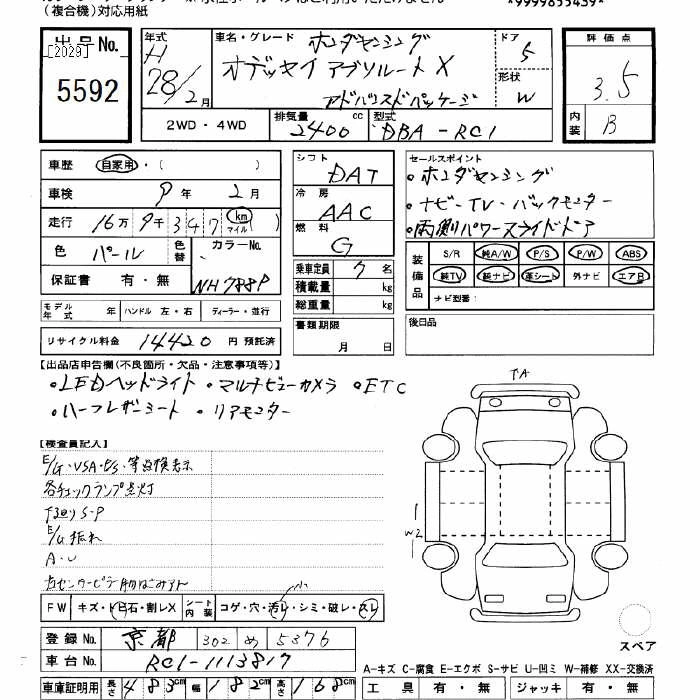 (複合機)対応用紙
*9999855439*
出品No.
[2029]
5592
年式 H 28/2月
車名・グレード ホンダセンシング
オデッセイ アブソルート X
アドバンスドパッケージ
ドア 5
形状 W
2WD・4WD
排気量 2400 cc
型式 DBA-RC1
評価点 3.5
内装 B
車歴 自家用・( )
車検 9年 2月
走行 16万9千347 km マイル ( )
色 パール 色替 カラーNo. NH788P
保証書 有・無
シフト DAT
冷房 AAC
燃料 G
乗車定員 7名
積載量 kg
総重量 kg
セールスポイント
・ホンダセンシング
・ナビ・TV・バックモニター
・両側パワースライドドア
装備品 S/R 純A/W P/S P/W ABS
純TV 純ナビ 革シート 外ナビ エアB
ナビ型番:
モデル年式 年 ハンドル 左・右 ディーラー・並行
リサイクル料金 14420 円 預託済
書類期限 月 日
後日品
【出品店申告欄(不良箇所・欠品・注意事項等)】
・LEDヘッドライト・マルチビューカメラ・ETC
・ハーフレザーシート・リアモニター
【検査員記入】
各チェックランプ点灯
下回りS・P
E/G振れ
A・U
TA
1
W2
FW キズ・ヒビ石・割レX シート内装 コゲ・穴・汚レ・シミ・破レ・スレ
小
登録No. 京都 302 め 5376
車台No. RC1-1113817
スペア
A-キズ C-腐食 E-エクボ S-サビ U-凹ミ W-補修 XX-交換済
車庫証明用 長さ 483cm 幅 182cm 高さ 168cm
工具 有・無 ジャッキ 有・無